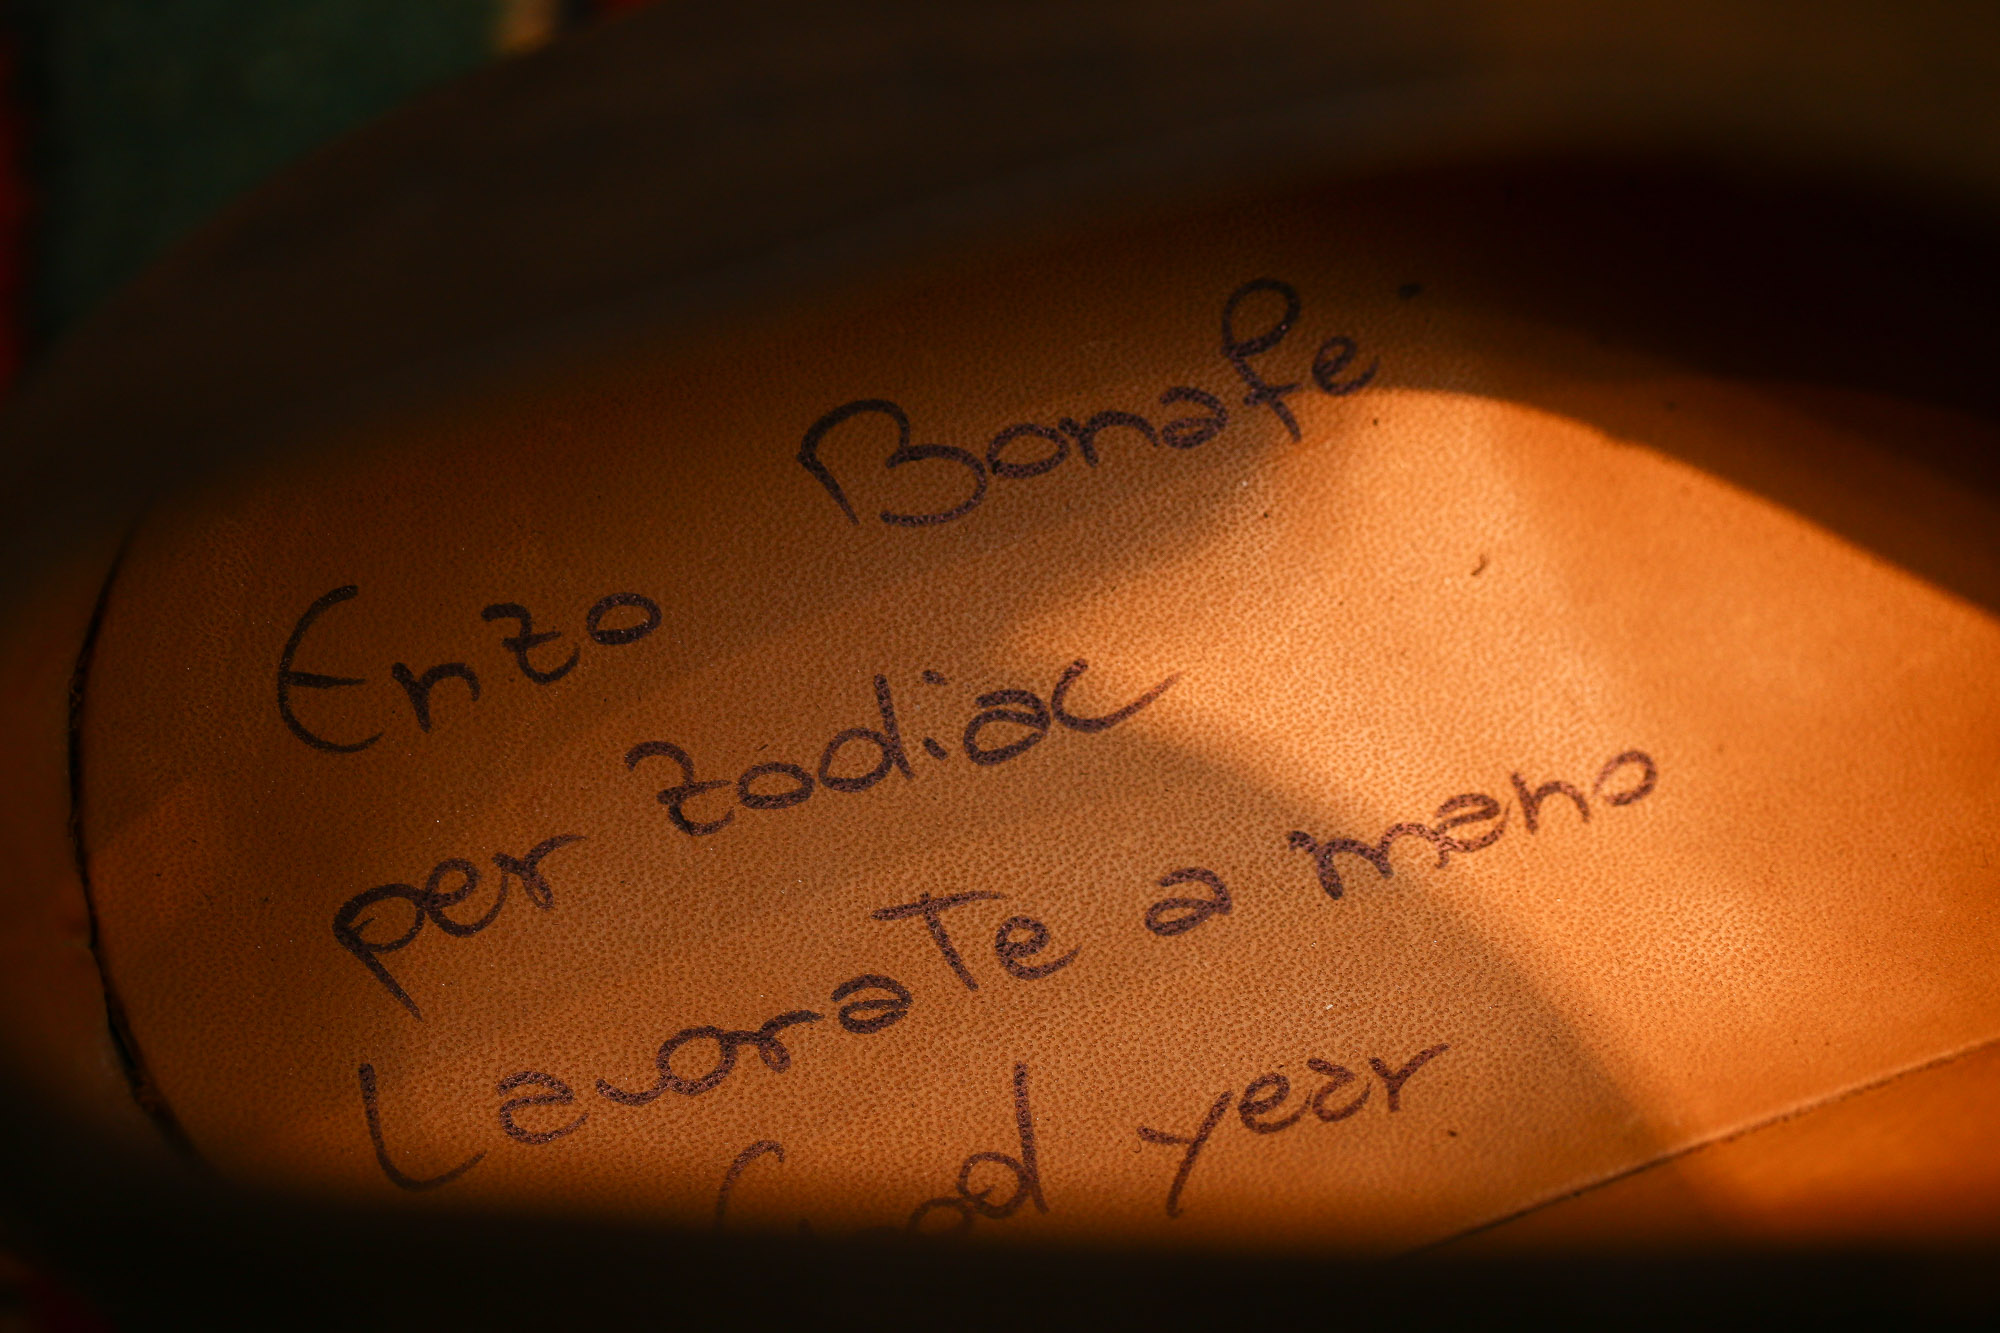 Enzo Bonafe'
per zodiac
Lavorate a mano
Good year